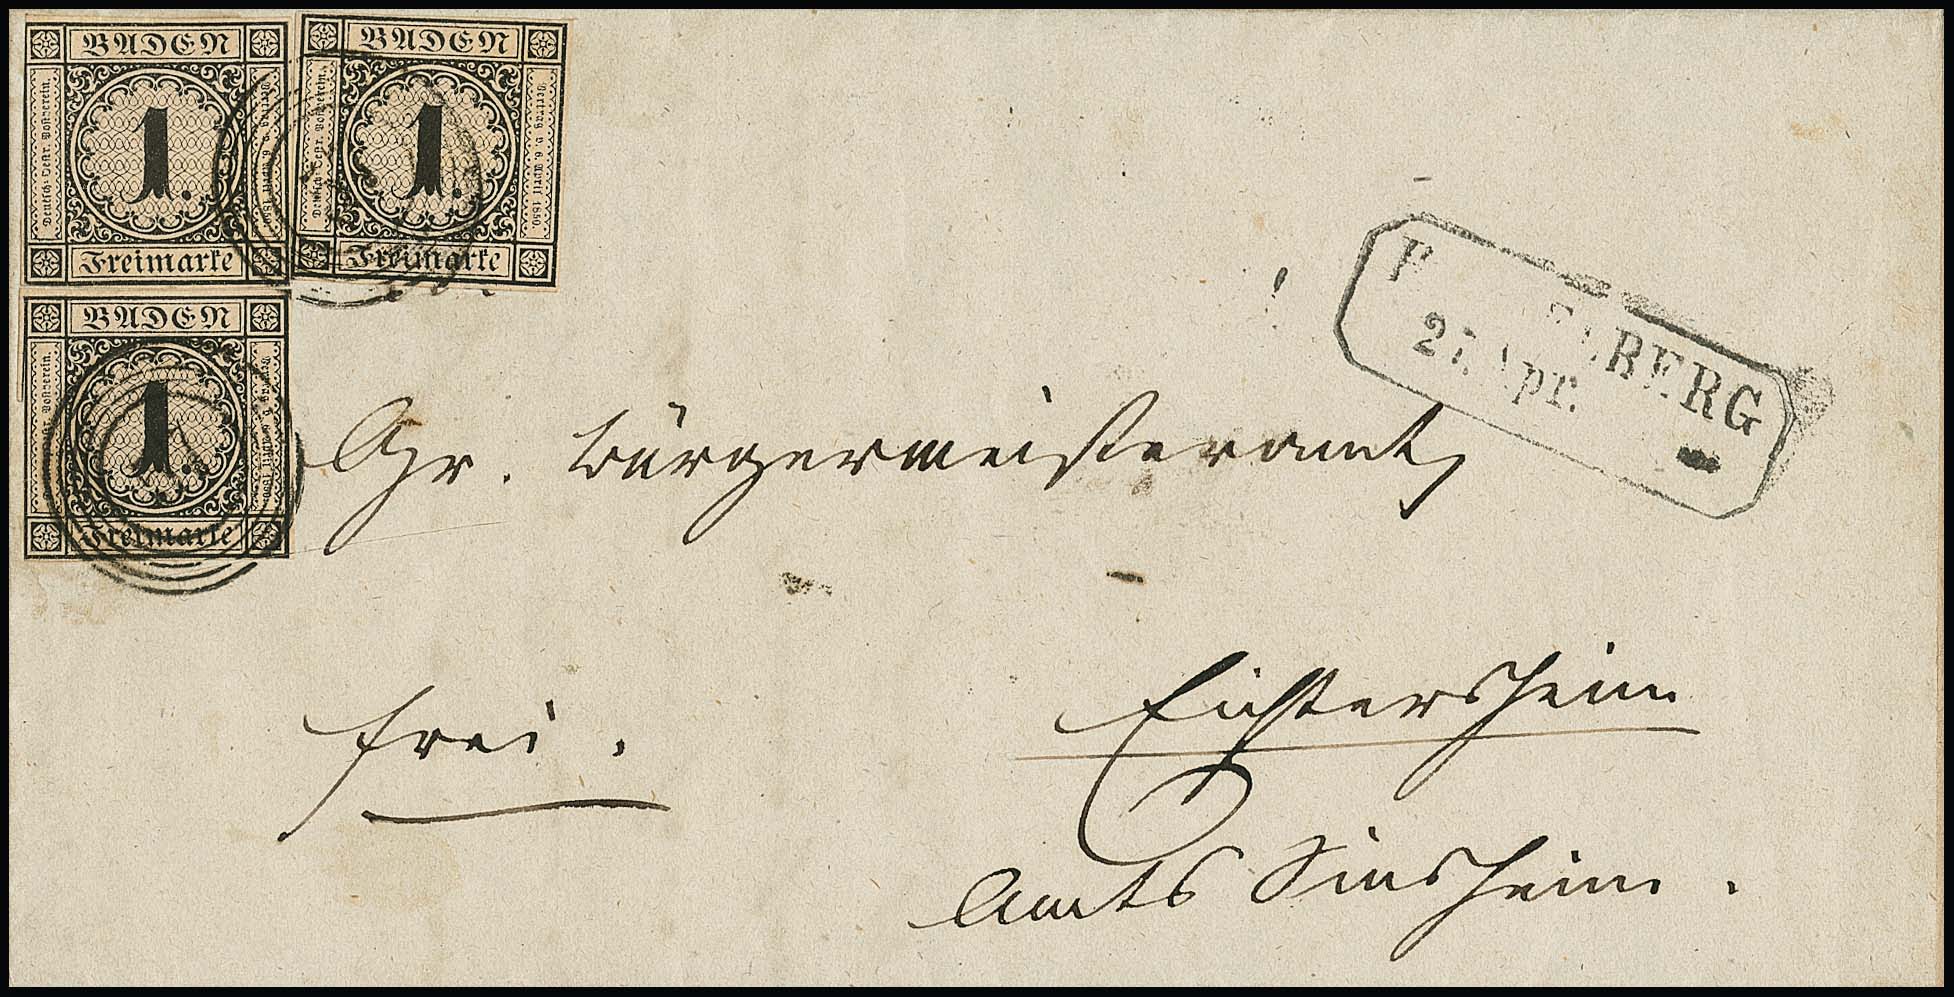 BADEN
Deutsch-Oestr. Postverein.
1.
Vertrag v. 6. April 1850.
Freimarke
BADEN
Deutsch-Oestr. Postverein.
1.
Vertrag v. 6. April 1850.
Freimarke
BADEN
Postverein.
1.
Vertrag v. 6. April 1850.
Freimarke
27 Apr.
Gr. Bürgermeisteramt
frei.
Eichtersheim
Amts Sinsheim.